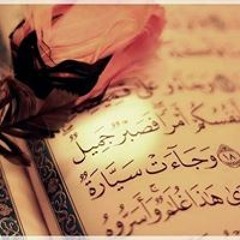 أَنفُسُكُمْ أَمْرًا فَصَبْرٌ جَمِيلٌ
١٨ وَجَآءَتْ سَيَّارَةٌ
هَٰذَا غُلَٰمٌ وَأَسَرُّوهُ